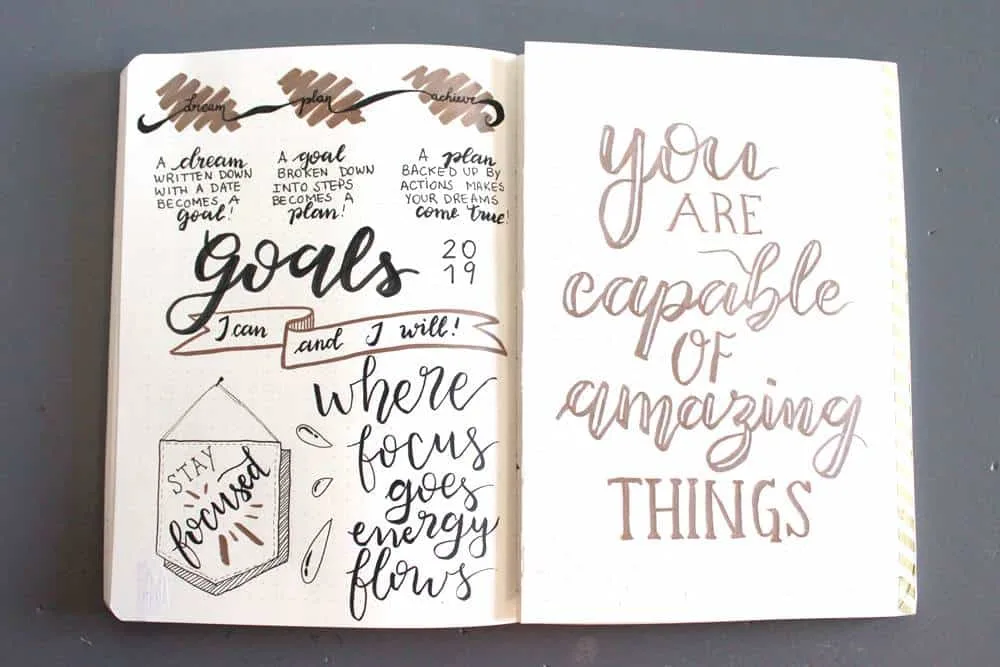 dream plan achieve
A dream
WRITTEN DOWN
WITH A DATE
BECOMES A
goal!
A goal
BROKEN DOWN
INTO STEPS
BECOMES A
plan!
A plan
BACKED UP BY
ACTIONS MAKES
YOUR DREAMS
come true!
Goals
20
19
I can and I will!
STAY
focused
where
focus
goes
energy
flows
you
ARE
capable
OF
amazing
THINGS